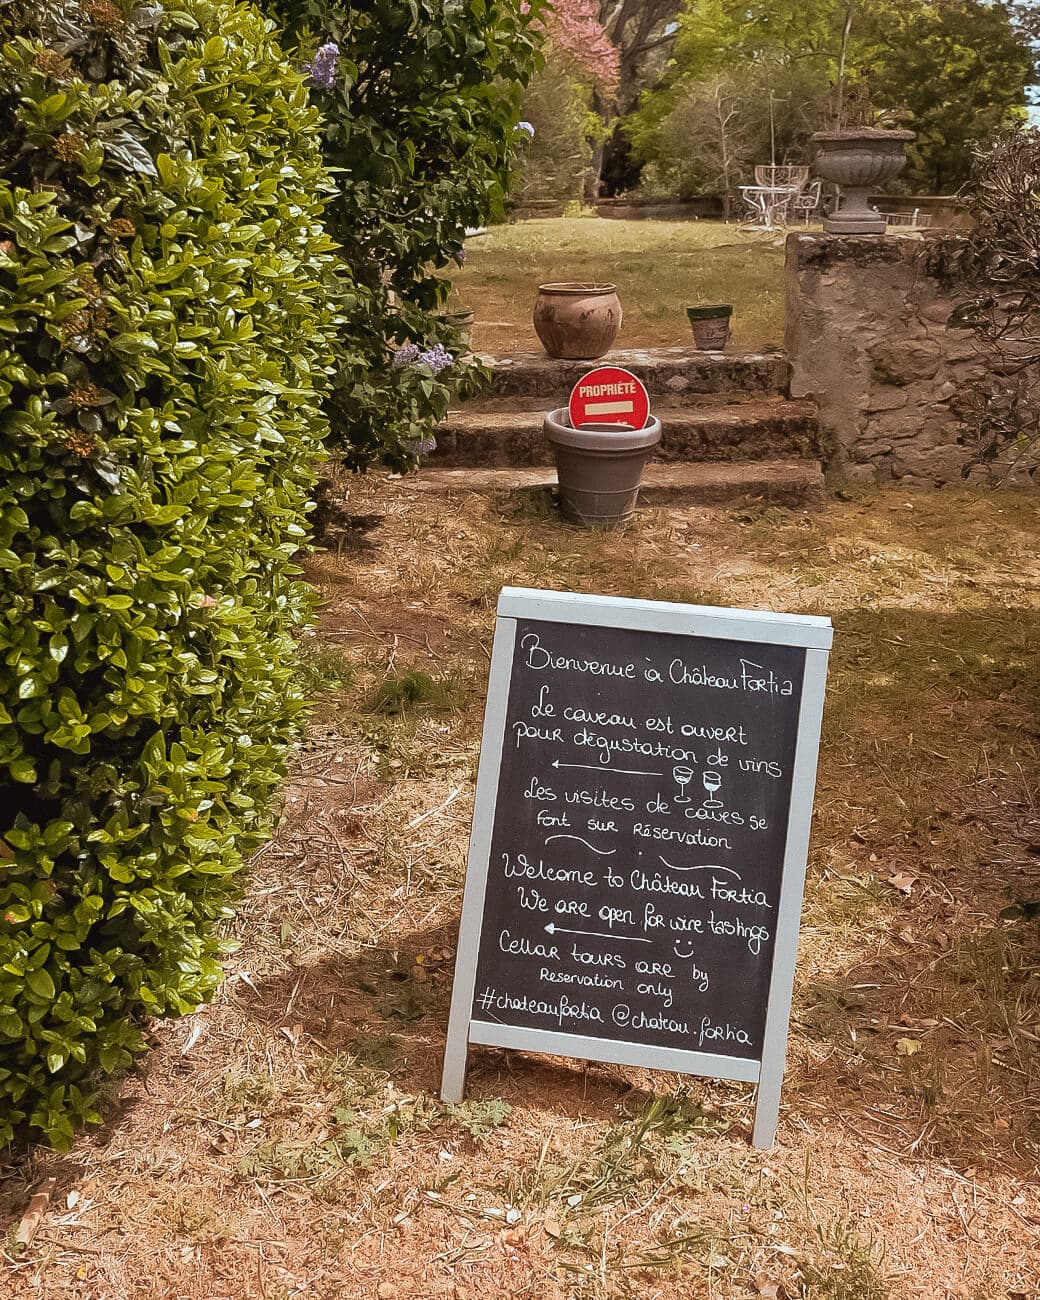 PROPRIÉTÉ
Bienvenue à Château Fortia
Le caveau est ouvert
pour dégustation de vins
Les visites de caves se
font sur Réservation
Welcome to Château Fortia
We are open for wine tastings
Cellar tours are by
Reservation only
#chateaufortia @chateau.fortia